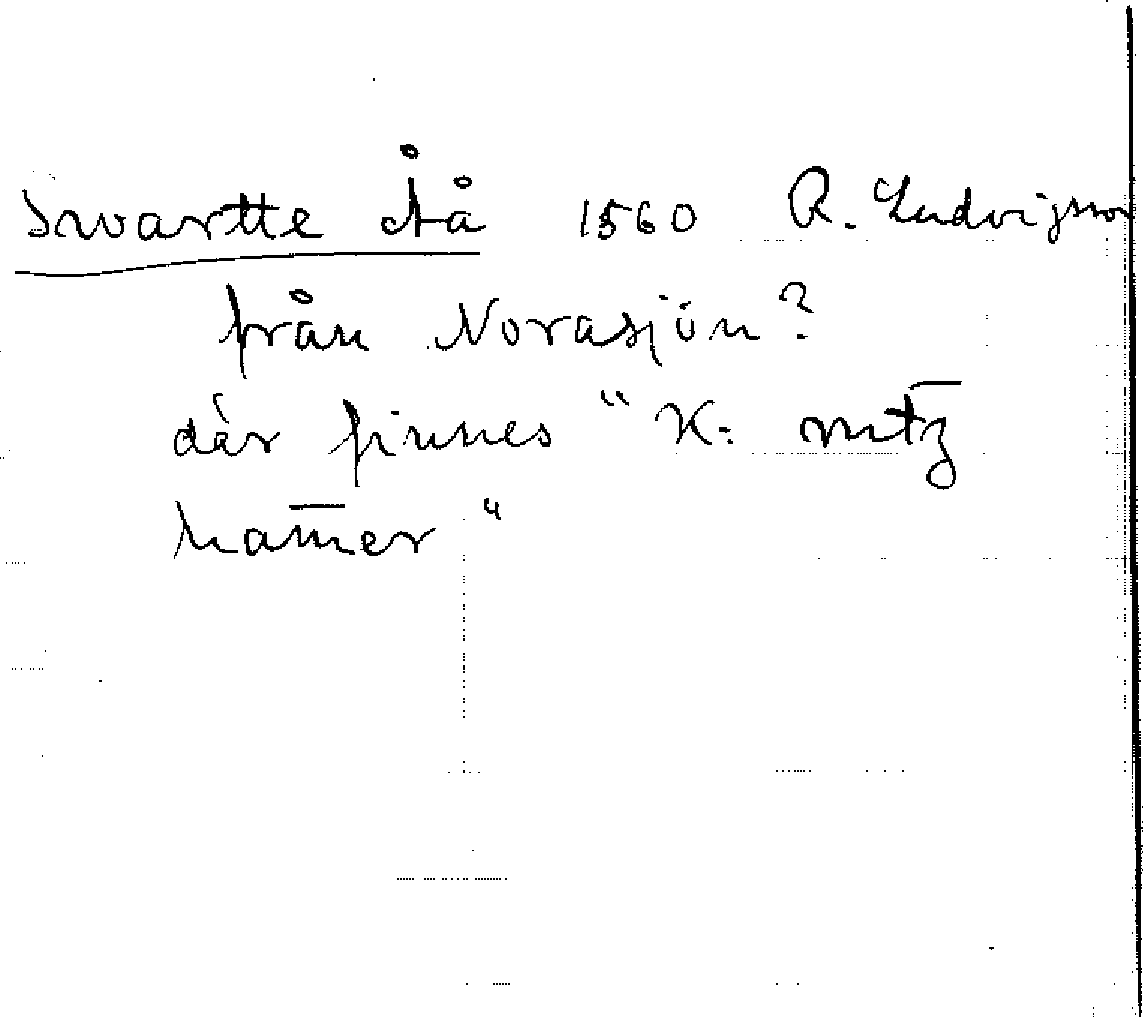 Swartte Åå 1560 R. Ludvigsson
från Norasjön?
där finnes "K: mtz̄
ham̄er"